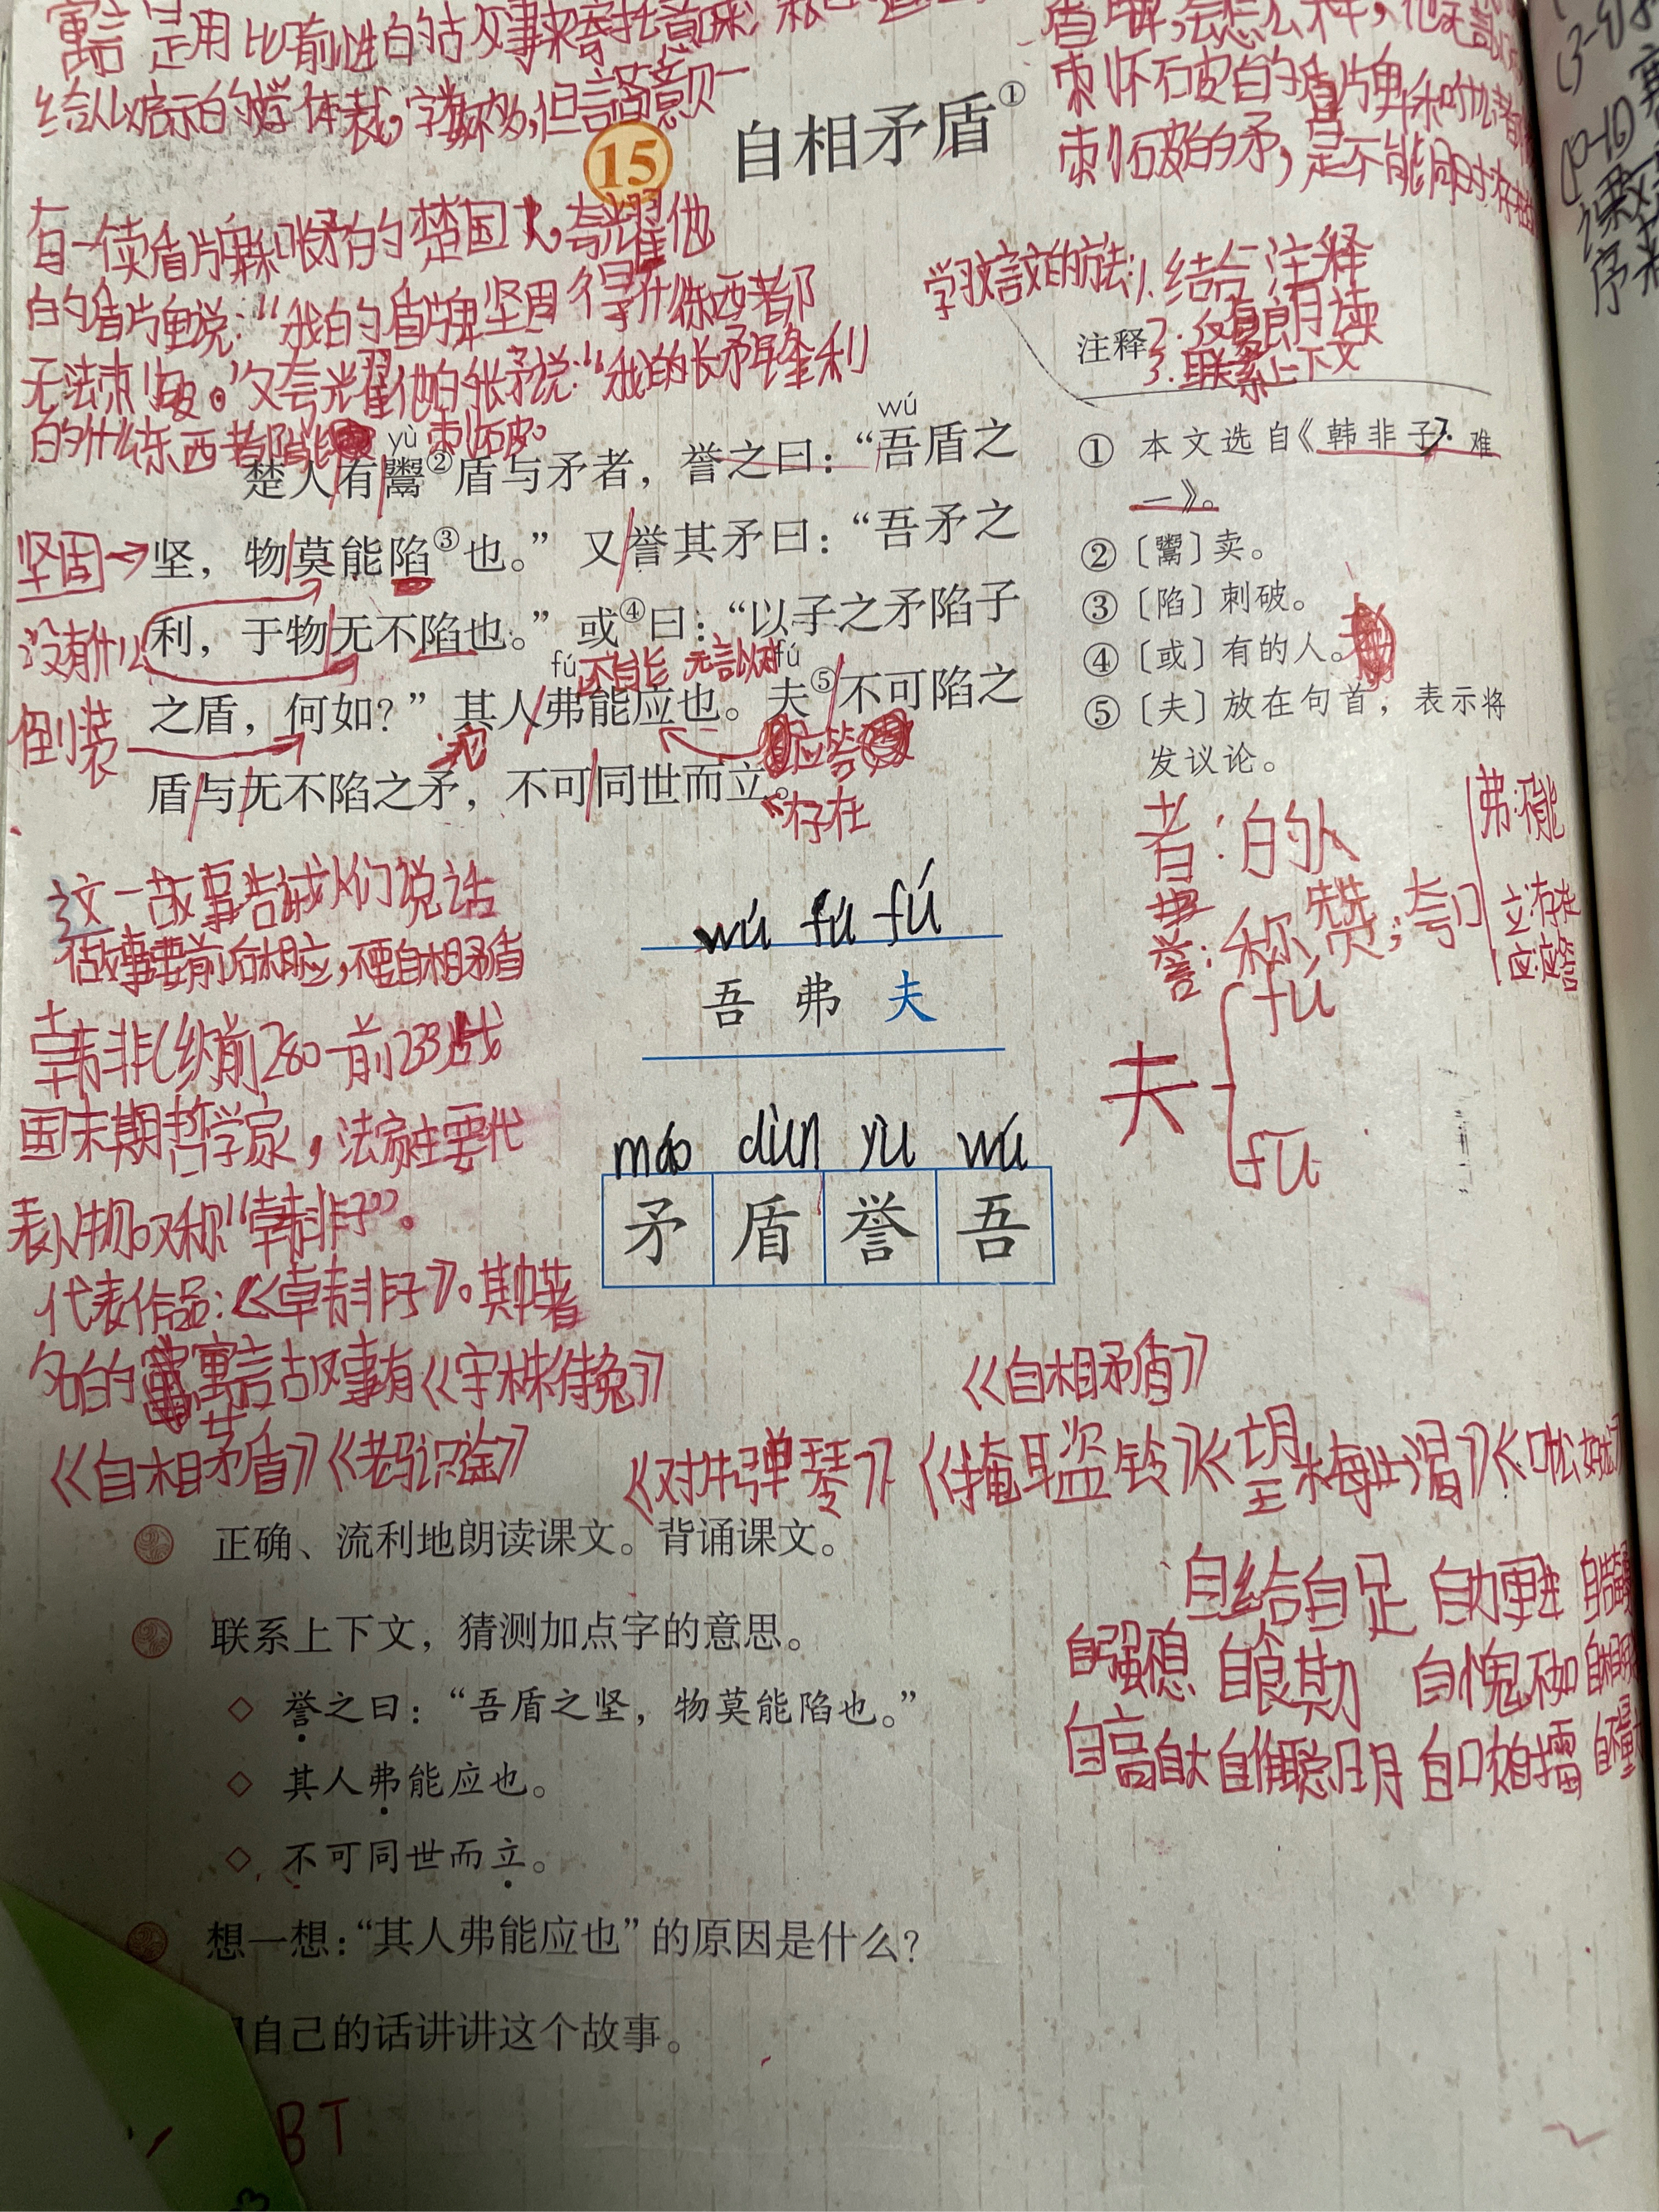 寓言是用比喻性的故事来寄托意味
给人以启示的文学体裁,字数不多,但言简意
盾牌,会怎么样,他无言
刺不破的盾牌和
刺不破的矛,是不能同时存在
15 自相矛盾①
有一卖盾牌和长矛的楚国人,夸耀他
的盾牌说:“我的盾牌坚固得什么东西都
无法刺破。”又夸耀他的长矛说:“我的长矛锋利
的什么东西都能刺破。
学习文言文的方法:1.结合注释
2.反复朗读
3.联系上下文
注释
yù wú
楚人有鬻②盾与矛者,誉之曰:“吾盾之
坚固 坚,物莫能陷③也。”又誉其矛曰:“吾矛之
没有什么 利,于物无不陷也。”或④曰:“以子之矛陷子
fú 不能 无言以对 fú
倒装 之盾,何如?”其人弗能应也。夫⑤不可陷之
应答
盾与无不陷之矛,不可同世而立。
存在
① 本文选自《韩非子·难
一》。
② 〔鬻〕卖。
③ 〔陷〕刺破。
④ 〔或〕有的人。
⑤ 〔夫〕放在句首,表示将
发议论。
者:的人
誉:称赞;夸口
弗:不能
立:存在
应:应答
夫 fú
fū
这一故事告诫人们说话
做事要前后相应,不要自相矛盾
韩非(约前280—前233)战
国末期哲学家,法家主要代
表人物。又称“韩非子”。
代表作品:《韩非子》。其中著
名的寓言故事有《守株待兔》
《自相矛盾》《老马识途》
wú fú fú
吾 弗 夫
máo dùn yù wú
矛 盾 誉 吾
《自相矛盾》
《对牛弹琴》《掩耳盗铃》《望梅止渴》
正确、流利地朗读课文。背诵课文。
自给自足 自力更生
自强不息 自食其力 自愧不如
自高自大 自作聪明 自吹自擂
联系上下文,猜测加点字的意思。
◇ 誉之曰:“吾盾之坚,物莫能陷也。”
◇ 其人弗能应也。
◇ 不可同世而立。
想一想:“其人弗能应也”的原因是什么?
自己的话讲讲这个故事。
BT